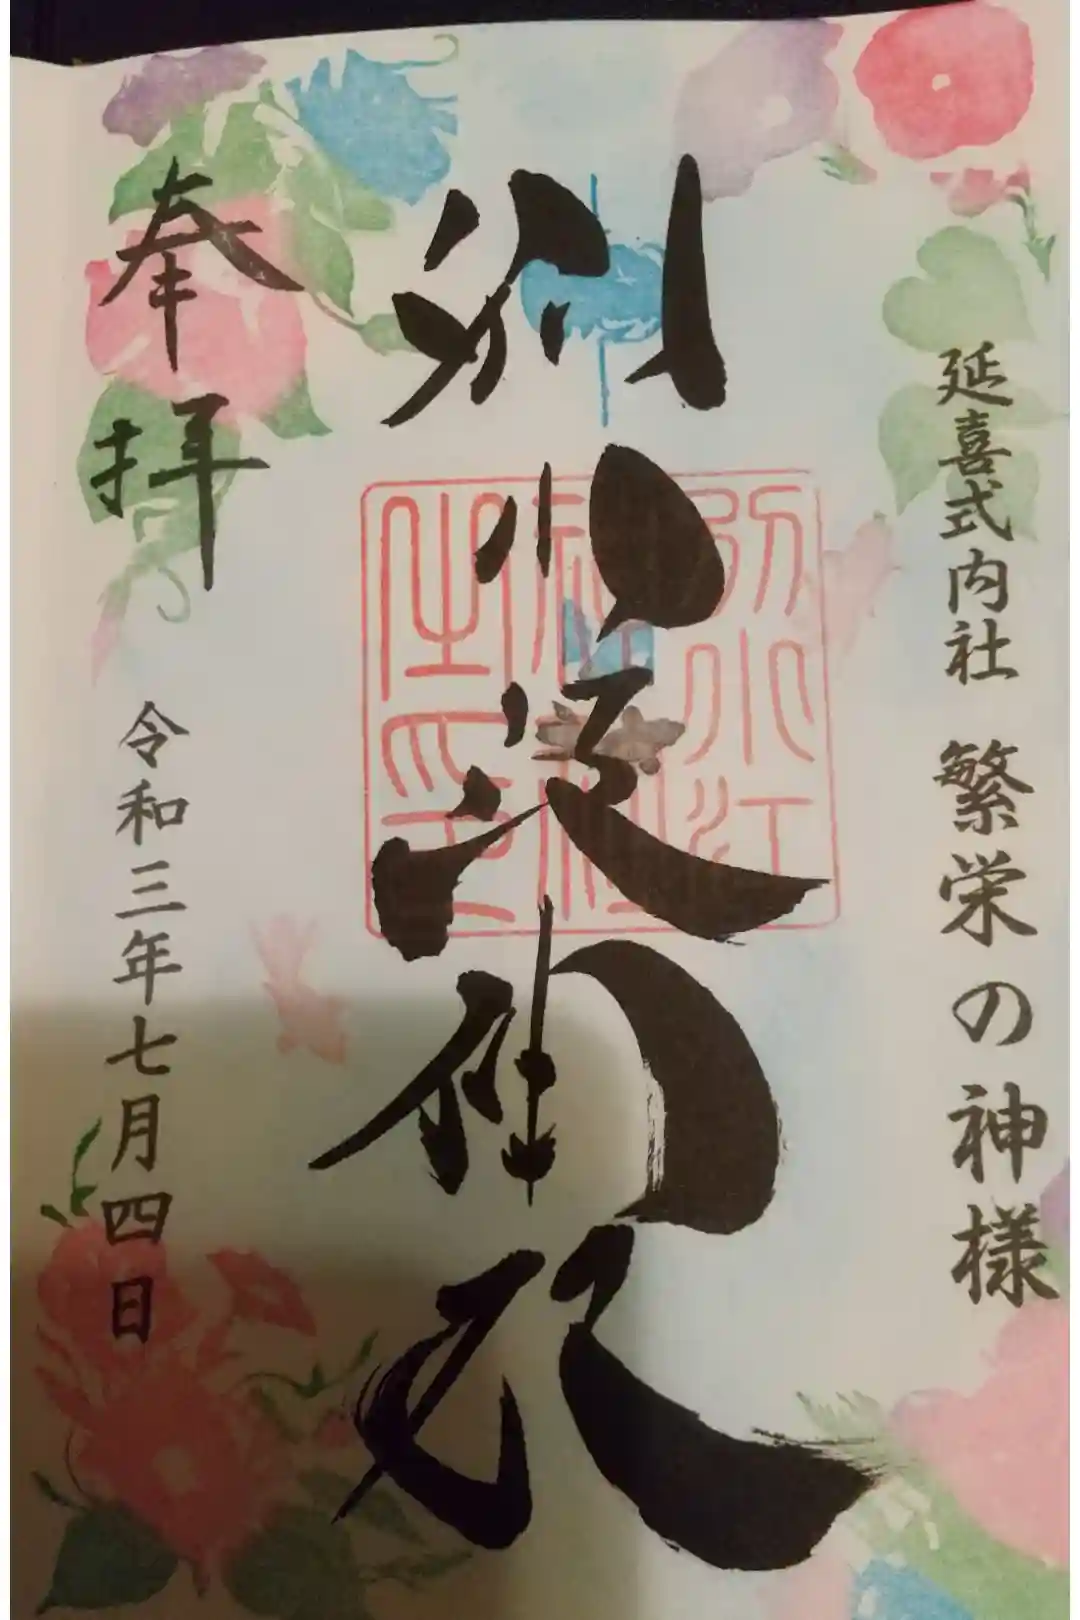 延喜式内社 繁栄の神様
別小江神社
別小江神社之印
奉拝
令和三年七月四日